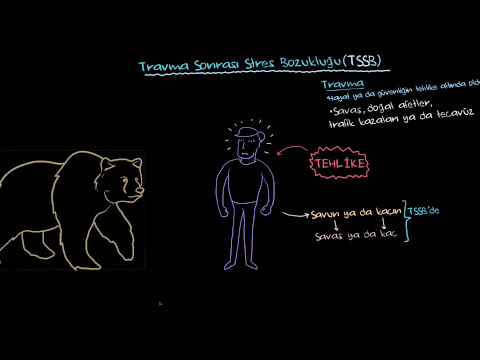 Travma Sonrası Stres Bozukluğu (TSSB)
Travma
Hayat ya da güvenliğin tehlike altında oldu
•Savaş, doğal afetler,
trafik kazaları ya da tecavüz
TEHLİKE
Savun ya da kaçın
TSSB'de
Savaş ya da kaç